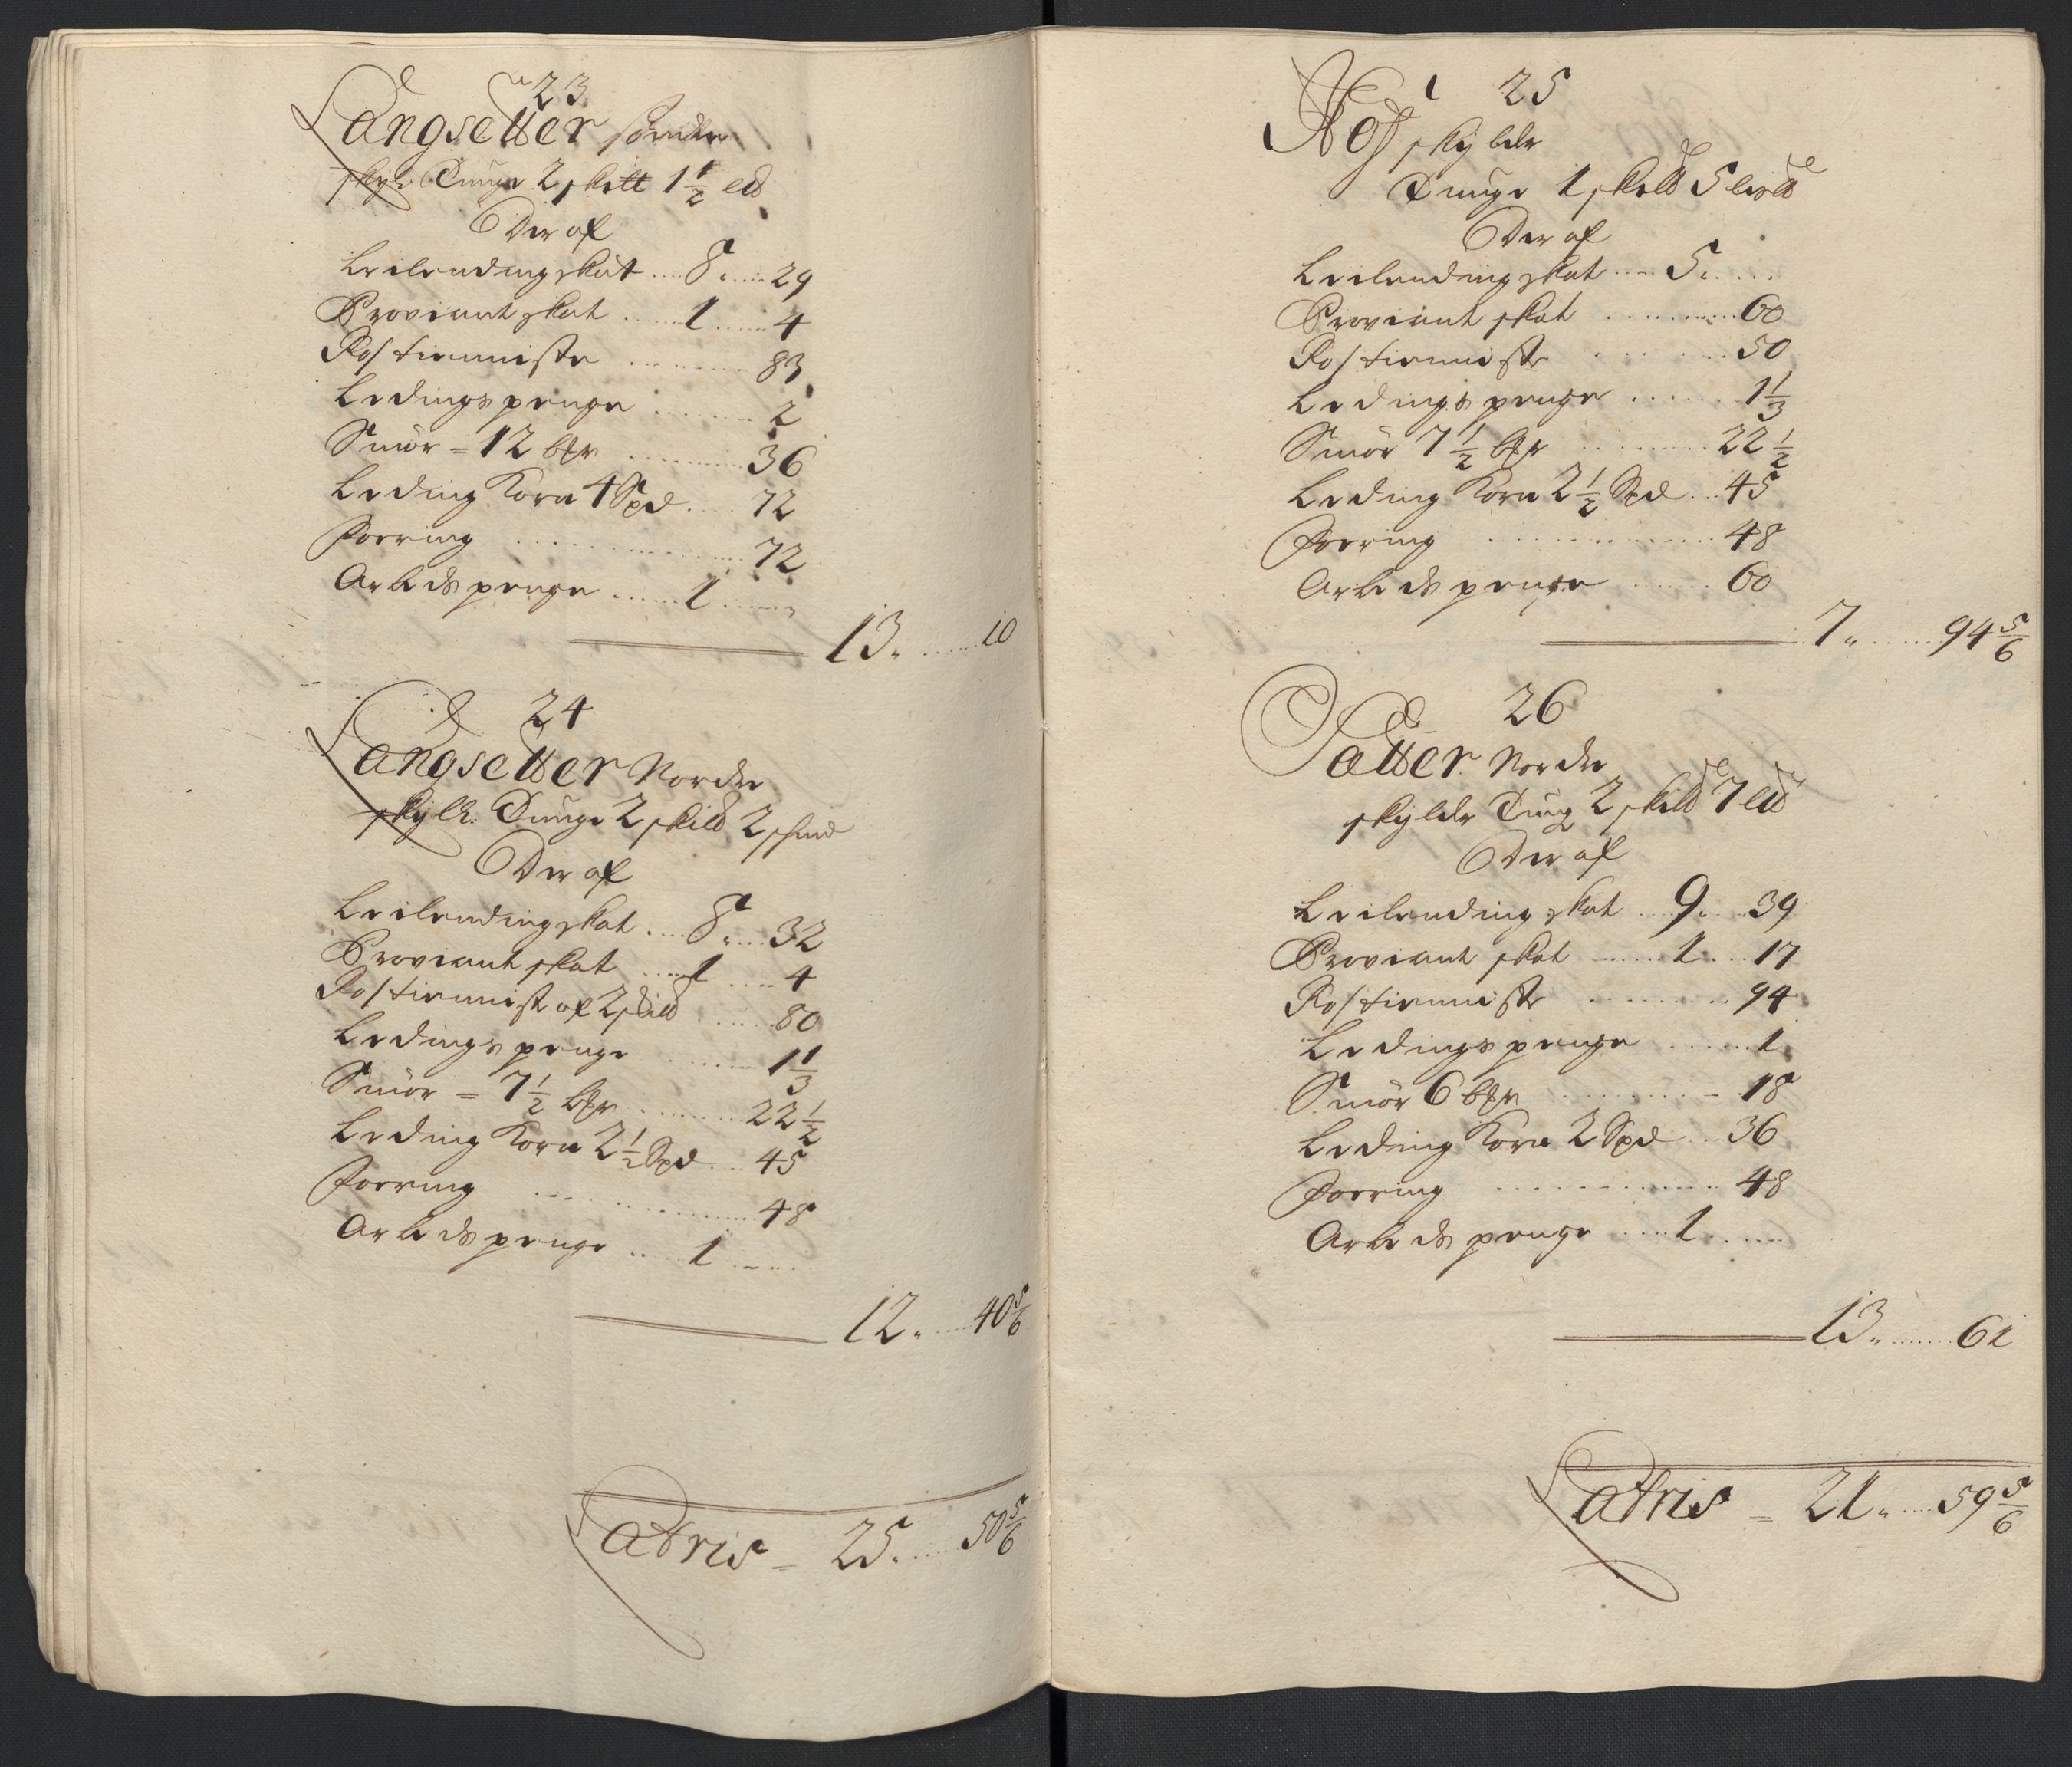 23
Langsetter søndre
skyl. Tunge 2 skill 1 1/2 ld
Der af
Leilendingskat 8 29
Proviantskat 1 4
Rostienniste 83
Ledingspenge 2
Smör = 12 bpr 36
Leding Korn 4 Spd 72
Foering 72
Arbeds penge 1
13 10
24
Langsetter Nordre
skylr. Tunge 2 skild 2
Der af
Leilendingskat 8 32
Proviantskat 1 4
Rostiennist af 2 skild 80
Ledingspenge 1 1/3
Smör = 7 1/2 bpr 22 1/2
Leding Korn 2 1/2 Spd 45
Foering 48
Arbeds penge 1
12 40 5/6
Latris = 25 50 5/6
25
skylder
Tunge 1 skild 5
Der af
Leilendingskat 5
Proviant skat 60
Rostienniste 50
Ledings penge 1 1/3
Smör 7 1/2 bpr 22 1/2
Leding Korn 2 1/2 Spd 45
Foering 48
Arbeds penge 60
7 94 5/6
26
Sætter Nordre
skylder Tung 2 skild 7 ld
Der af
Leilending skat 9 39
Proviant skat 1 17
Rostienniste 94
Ledings penge 1
Smör 6 bpr 18
Leding Korn 2 Spd 36
Foering 48
Arbeds penge 1
13 61
Latris = 21 59 5/6